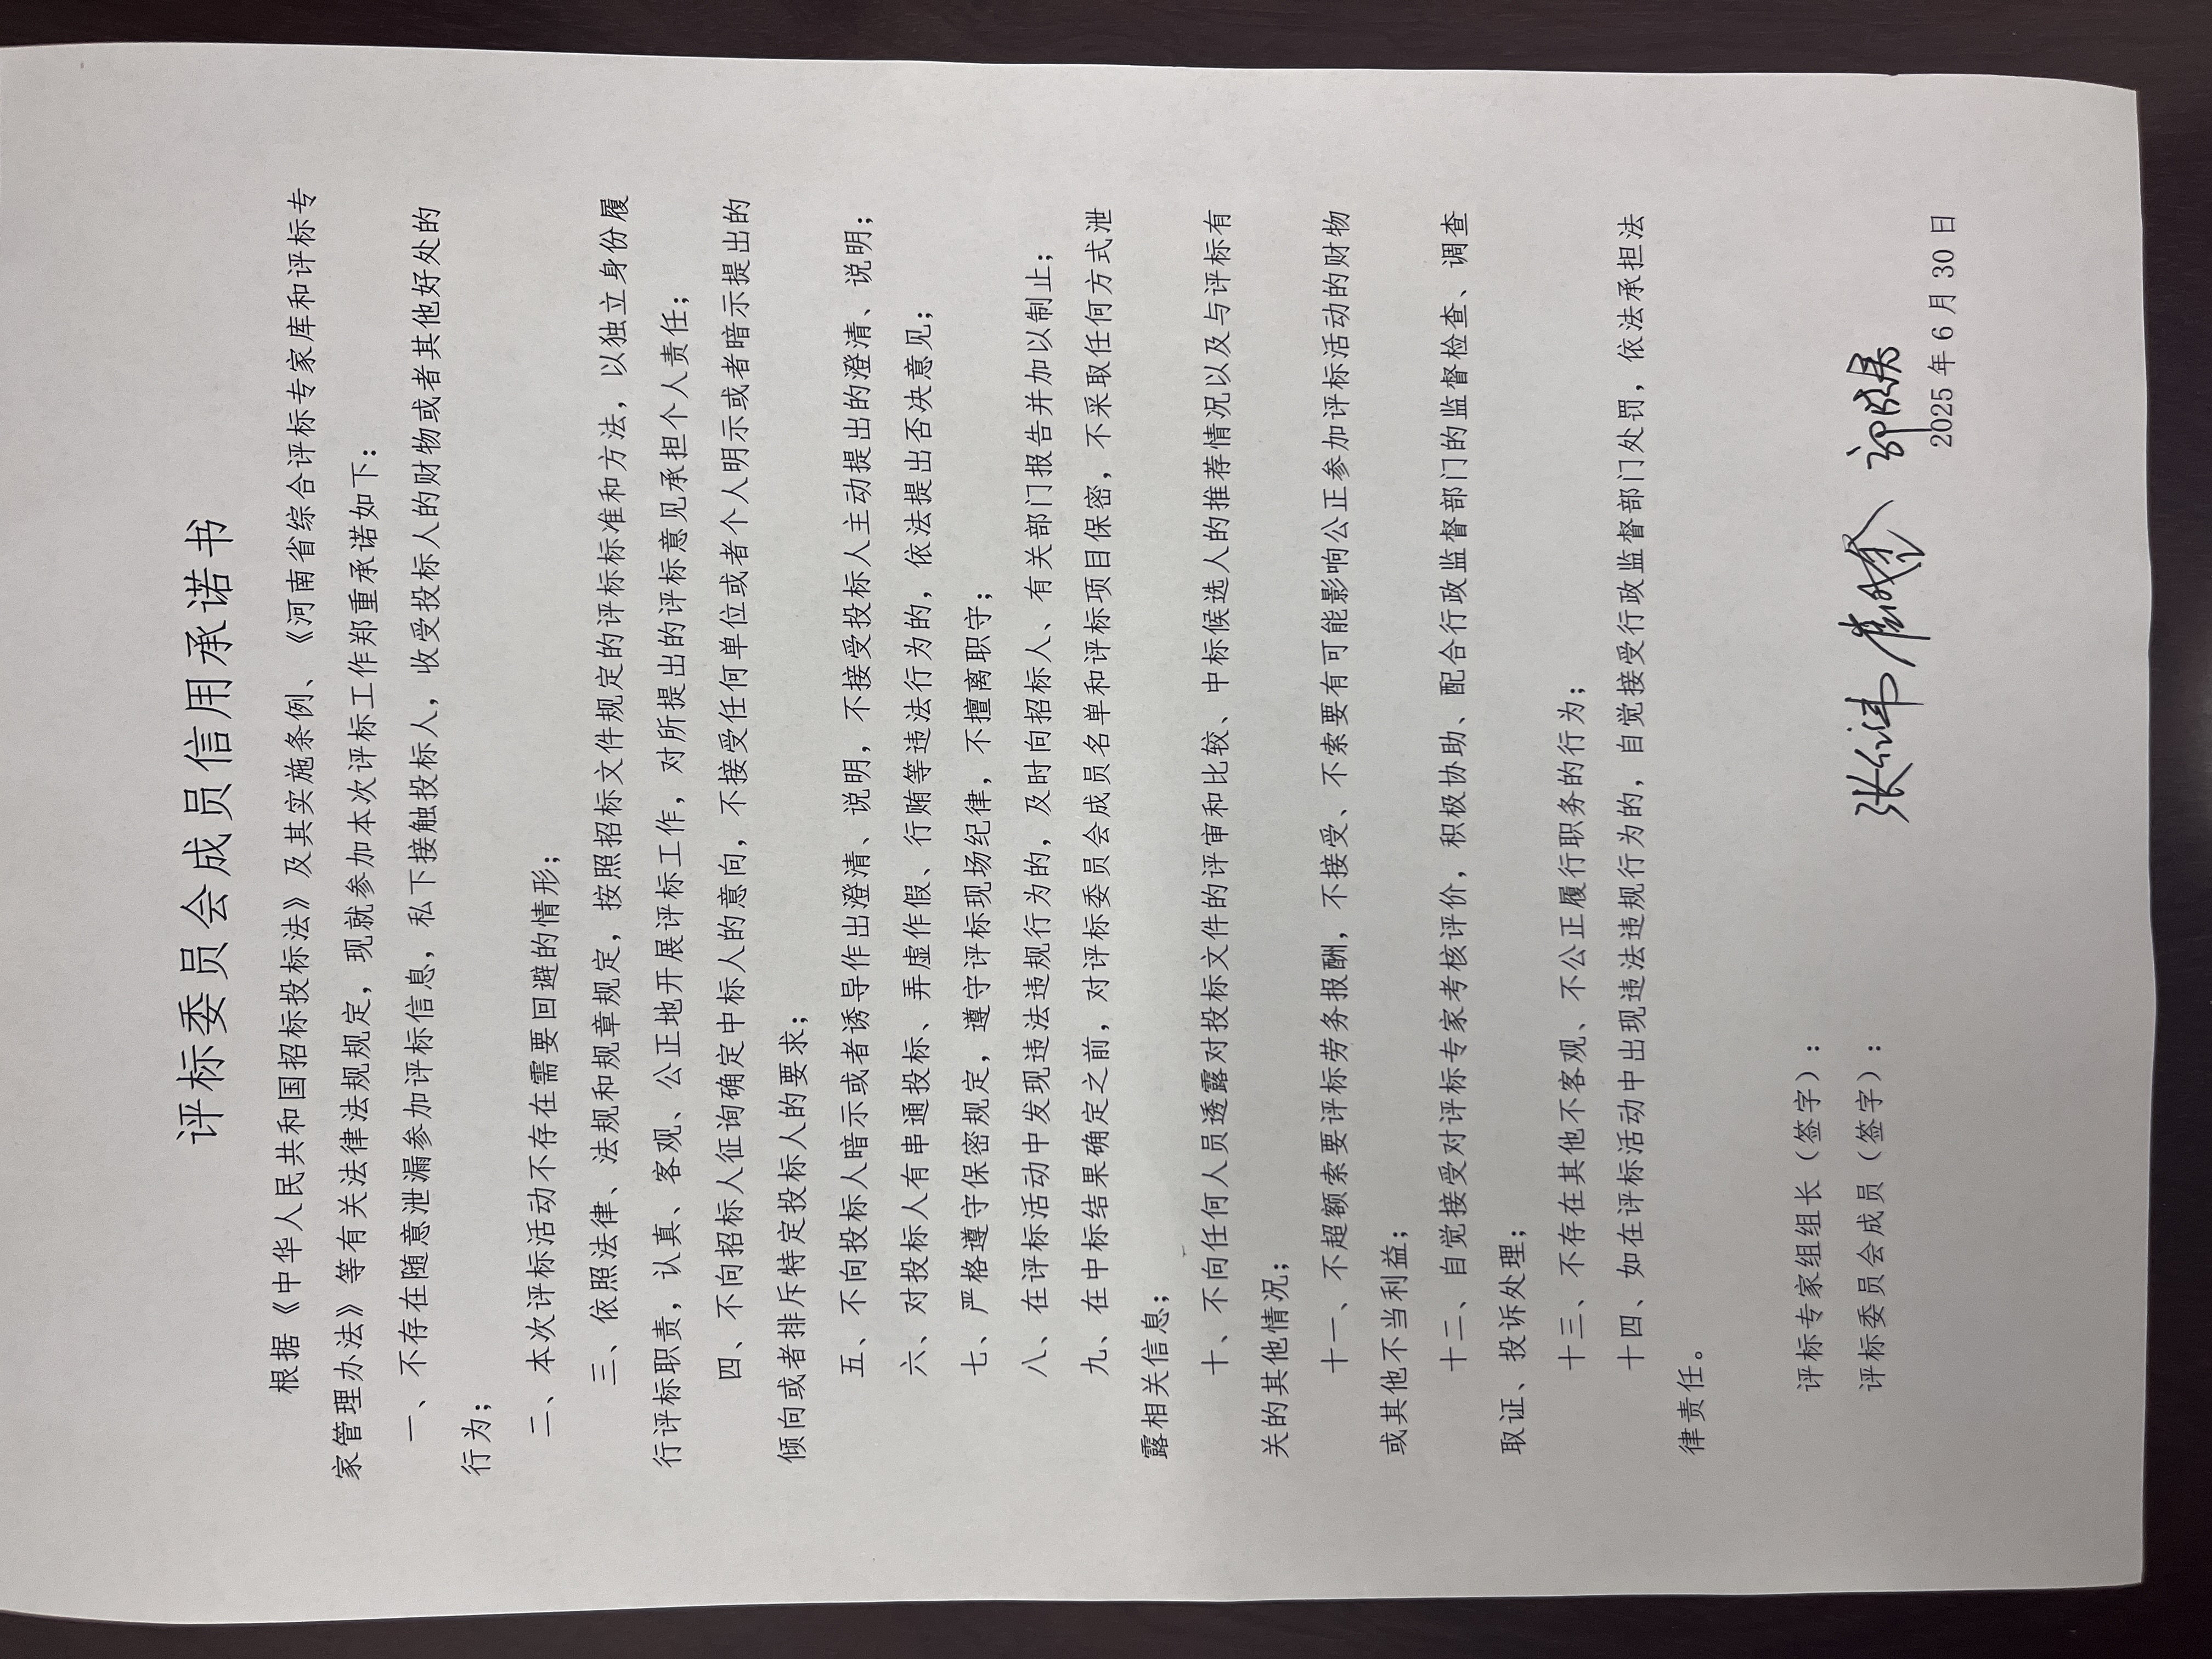 评标委员会成员信用承诺书
根据《中华人民共和国招标投标法》及其实施条例、《河南省综合评标专家库和评标专
家管理办法》等有关法律法规规定，现就参加本次评标工作郑重承诺如下：
一、不存在随意泄漏参加评标信息，私下接触投标人，收受投标人的财物或者其他好处的
行为；
二、本次评标活动不存在需要回避的情形；
三、依照法律、法规和规章规定，按照招标文件规定的评标标准和方法，以独立身份履
行评标职责，认真、客观、公正地开展评标工作，对所提出的评标意见承担个人责任；
四、不向招标人征询确定中标人的意向，不接受任何单位或者个人明示或者暗示提出的
倾向或者排斥特定投标人的要求；
五、不向投标人暗示或者诱导作出澄清、说明，不接受投标人主动提出的澄清、说明；
六、对投标人有串通投标、弄虚作假、行贿等违法行为的，依法提出否决意见；
七、严格遵守保密规定，遵守评标现场纪律，不擅离职守；
八、在评标活动中发现违法违规行为的，及时向招标人、有关部门报告并加以制止；
九、在中标结果确定之前，对评标委员会成员名单和评标项目保密，不采取任何方式泄
露相关信息；
十、不向任何人员透露对投标文件的评审和比较、中标候选人的推荐情况以及与评标有
关的其他情况；
十一、不超额索要评标劳务报酬，不接受、不索要有可能影响公正参加评标活动的财物
或其他不当利益；
十二、自觉接受对评标专家考核评价，积极协助、配合行政监督部门的监督检查、调查
取证、投诉处理；
十三、不存在其他不客观、不公正履行职务的行为；
十四、如在评标活动中出现违法违规行为的，自觉接受行政监督部门处罚，依法承担法
律责任。
评标专家组组长（签字）：
评标委员会成员（签字）：
2025 年 6 月 30 日